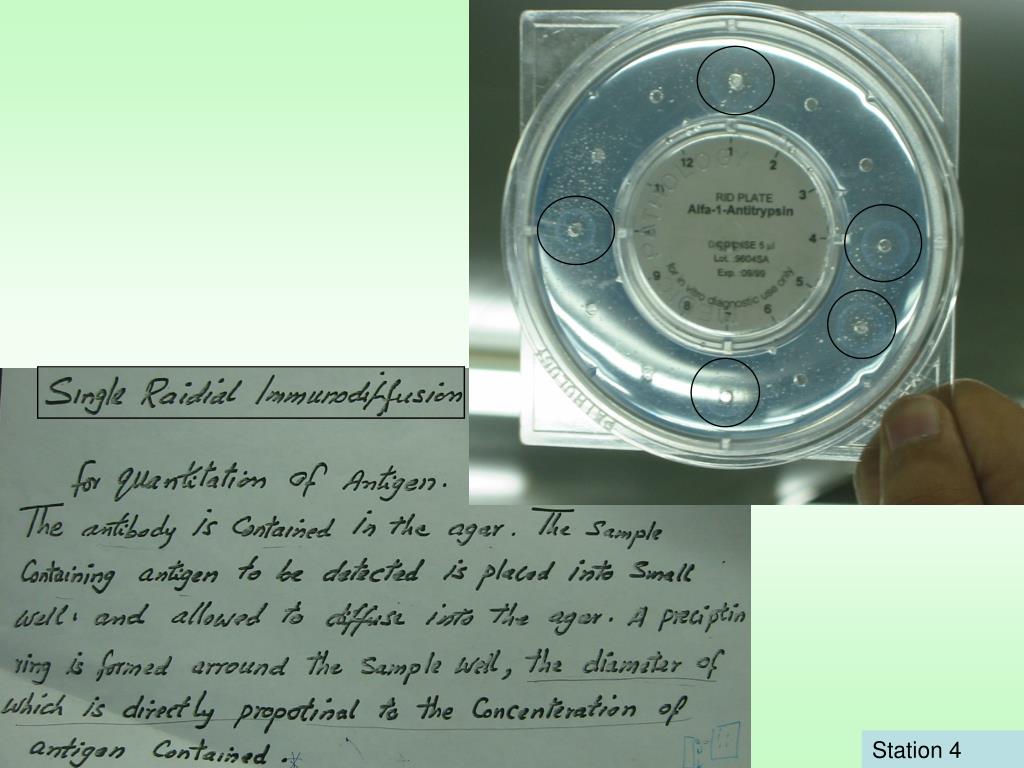 PATHOLOGY
12
1
2
3
11
RID PLATE
Alfa-1-Antitrypsin
4
DISPENSE 5 µl
Lot. :9604SA
9
Exp. :09/99
5
for in vitro diagnostic use only
8
7
6
Single Raidial Immunodiffusion
for quantitation of Antigen.
The antibody is Contained in the agar. The Sample
Containing antigen to be detected is placed into Small
well. and allowed to diffuse into the agar. A preciptin
ring is formed arround the Sample well, the diameter of
which is directly propotinal to the Concenteration of
antigen Contained.*
Station 4